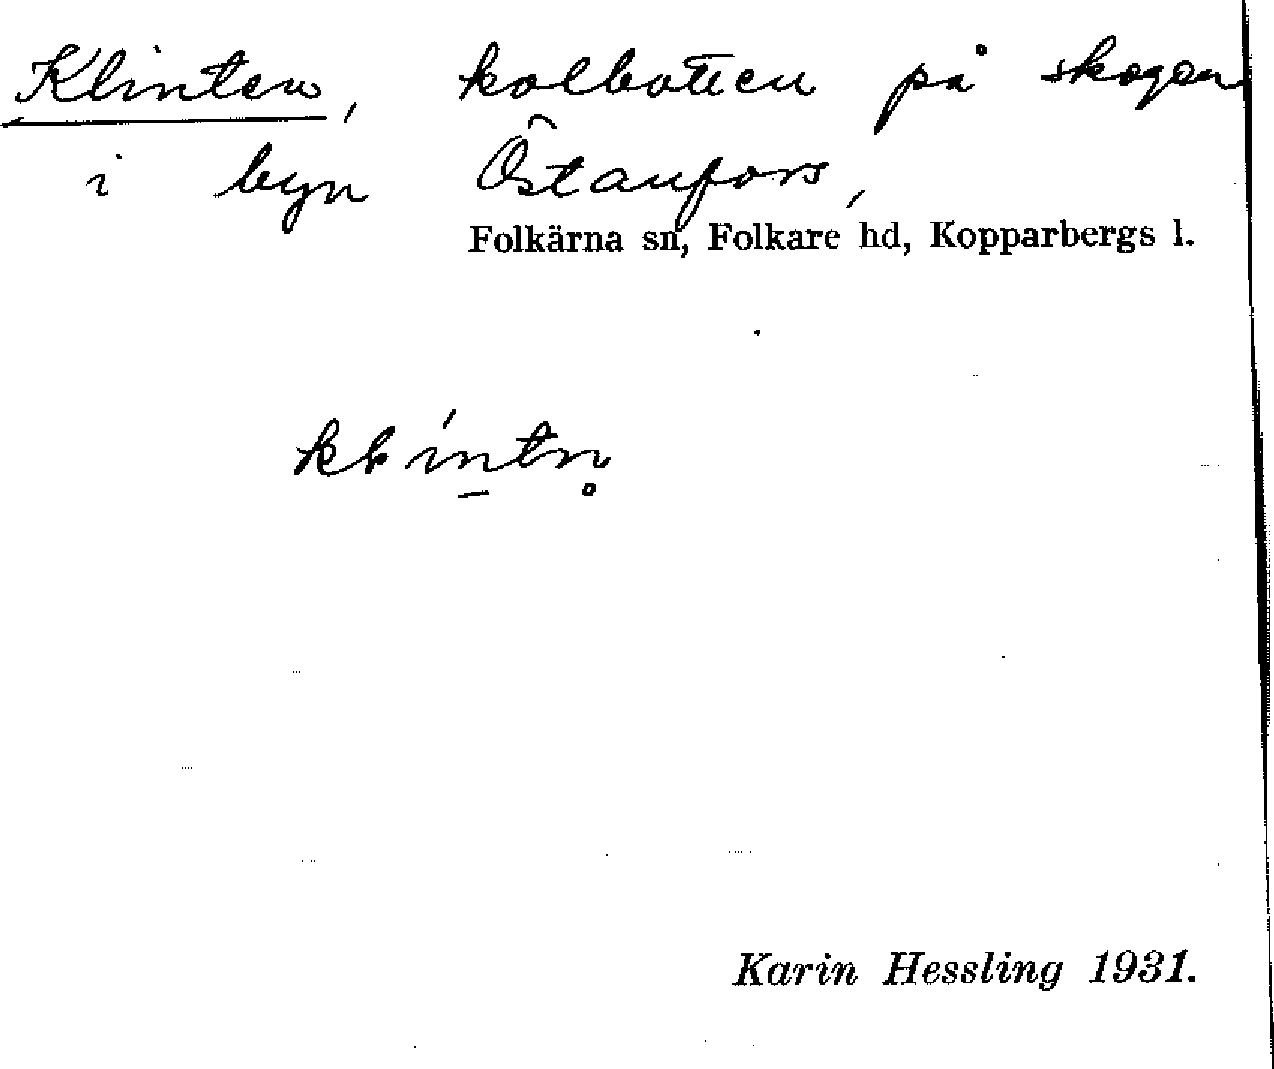 Klinten, kolbotten på skogen
i byn Östanfors,
Folkärna sn, Folkare hd, Kopparbergs l.
klíntn̥
Karin Hessling 1931.